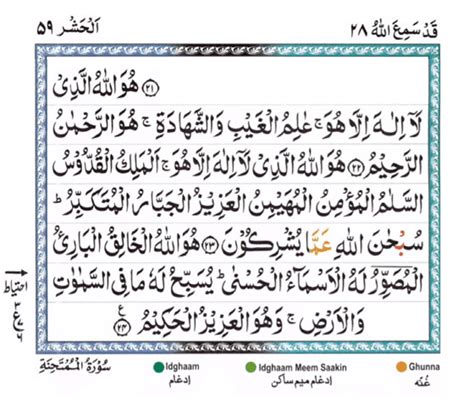 قَدْ سَمِعَ اللّٰهُ ٢٨ اَلْحَشْر ٥٩
﴿٢١﴾ هُوَ اللّٰهُ الَّذِىْ
لَاۤ اِلٰهَ اِلَّا هُوَ ۚ عٰلِمُ الْغَيْبِ وَالشَّهَادَةِ ۚ هُوَ الرَّحْمٰنُ
الرَّحِيْمُ ﴿٢٢﴾ هُوَ اللّٰهُ الَّذِىْ لَاۤ اِلٰهَ اِلَّا هُوَ ۚ اَلْمَلِكُ الْقُدُّوْسُ
السَّلٰمُ الْمُؤْمِنُ الْمُهَيْمِنُ الْعَزِيْزُ الْجَبَّارُ الْمُتَكَبِّرُ ؕ
سُبْحٰنَ اللّٰهِ عَمَّا يُشْرِكُوْنَ ﴿٢٣﴾ هُوَ اللّٰهُ الْخَالِقُ الْبَارِئُ
الْمُصَوِّرُ لَهُ الْاَسْمَآءُ الْحُسْنٰى ؕ يُسَبِّحُ لَهٗ مَا فِى السَّمٰوٰتِ
وَالْاَرْضِ ۚ وَهُوَ الْعَزِيْزُ الْحَكِيْمُ ﴿٢٤﴾ ع
احتياط
٣
ع
٦
سُوْرَةُ الْمُمْتَحِنَةِ
Idghaam
ادغام
Idghaam Meem Saakin
ادغام ميم ساكن
Ghunna
غُنّه